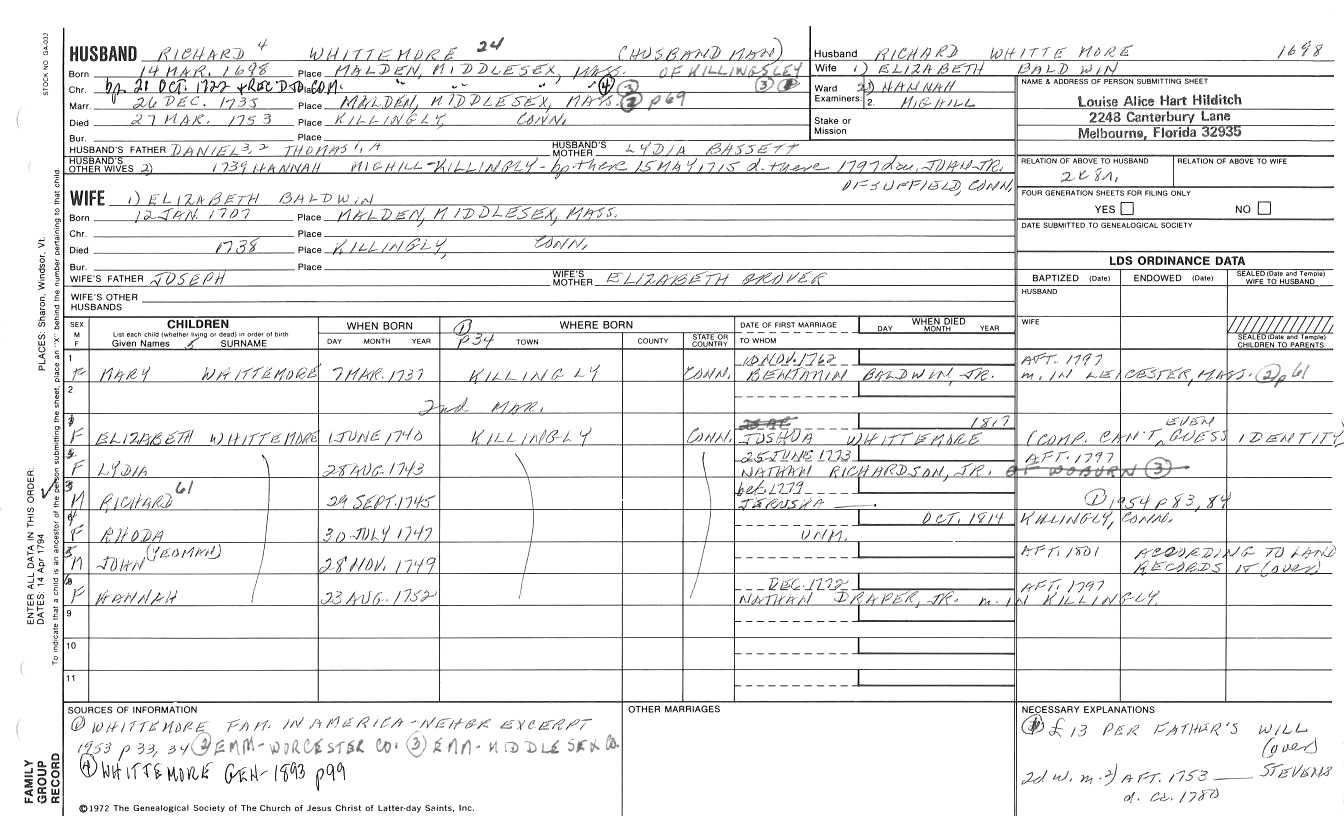 STOCK NO. GA-032
HUSBAND RICHARD 4 WHITTEMORE 24 (HUSBAND MAN)
Born 14 MAR. 1698 Place MALDEN, MIDDLESEX, MASS. OF KILLINGSLEY
Chr. bp 21 OCT. 1722 + REC'D TO COM. " " " (4) (3) (3)
Marr. 26 DEC. 1735 Place MALDEN, MIDDLESEX, MASS. (2) p69
Died 27 MAR. 1753 Place KILLINGLY, CONN.
Bur. Place
HUSBAND'S FATHER DANIEL 3, 2 THOMAS 1, A HUSBAND'S MOTHER LYDIA BASSETT
HUSBAND'S OTHER WIVES 2) 1739 HANNAH MIGHILL-KILLINGLY-bp there 15 MAY 1715 d. there 1797 dau. JOHN JR.
OF SUFFIELD, CONN.
Husband RICHARD WHITTEMORE 1698
Wife 1) ELIZABETH BALDWIN
Ward 2) HANNAH
Examiners: 2. MIGHILL
Stake or Mission
NAME & ADDRESS OF PERSON SUBMITTING SHEET
Louise Alice Hart Hilditch
2248 Canterbury Lane
Melbourne, Florida 32935
RELATION OF ABOVE TO HUSBAND RELATION OF ABOVE TO WIFE
FOUR GENERATION SHEETS FOR FILING ONLY
YES NO
DATE SUBMITTED TO GENEALOGICAL SOCIETY
WIFE 1) ELIZABETH BALDWIN
Born 12 JAN. 1707 Place MALDEN, MIDDLESEX, MASS.
Chr. Place
Died 1738 Place KILLINGLY, CONN.
Bur. Place
WIFE'S FATHER JOSEPH WIFE'S MOTHER ELIZABETH GROVER
WIFE'S OTHER HUSBANDS
LDS ORDINANCE DATA
BAPTIZED (Date) ENDOWED (Date) SEALED (Date and Temple) WIFE TO HUSBAND
HUSBAND
WIFE
SEALED (Date and Temple) CHILDREN TO PARENTS
SEX M F CHILDREN List each child (whether living or dead) in order of birth Given Names 5 SURNAME
WHEN BORN DAY MONTH YEAR
(1) p34 WHERE BORN TOWN COUNTY STATE OR COUNTRY
DATE OF FIRST MARRIAGE TO WHOM
WHEN DIED DAY MONTH YEAR
1 10 NOV. 1762 AFT. 1797
F MARY WHITTEMORE 7 MAR. 1737 KILLINGLY CONN. BENJAMIN BALDWIN, JR. m. IN LEICESTER, MASS. (2) p61
2
2nd MAR.
1 1817 EVEN
F ELIZABETH WHITTEMORE 1 JUNE 1740 KILLINGLY CONN. JOSHUA WHITTEMORE (COMP. CAN'T GUESS IDENTITY
25 JUNE 1773 AFT. 1797
F LYDIA 28 AUG. 1743 NATHAN RICHARDSON, JR. OF WOBURN (3)
3 bef. 1779
M RICHARD 61 29 SEPT. 1745 JERUSHA (1) 1954 p 83, 84
4 OCT. 1814 KILLINGLY, CONN.
F RHODA 30 JULY 1747 UNM.
5 (YEOMAN) AFT. 1801 ACCORDING TO LAND
M JOHN 28 NOV. 1749 RECORDS IT (over)
6 DEC. 1772 AFT. 1797
F HANNAH 23 AUG. 1752 NATHAN DRAPER, JR. m. IN KILLINGLY.
9
10
11
SOURCES OF INFORMATION
(1) WHITTEMORE FAM. IN AMERICA-NEHGR EXCERPT
1953 p 33, 34 (2) EMM-WORCESTER CO. (3) EMM-MIDDLESEX CO.
(4) WHITTEMORE GEN-1893 p99
OTHER MARRIAGES
NECESSARY EXPLANATIONS
£ 13 PER FATHER'S WILL
(over)
2d W. m. 2) AFT. 1753 STEVENS
d. ca. 1780
©1972 The Genealogical Society of The Church of Jesus Christ of Latter-day Saints, Inc.
ENTER ALL DATA IN THIS ORDER:
DATES: 14 Apr 1794 PLACES: Sharon, Windsor, Vt.
To indicate that a child is an ancestor of the person submitting the sheet, place an "X" behind the number pertaining to that child.
FAMILY GROUP RECORD